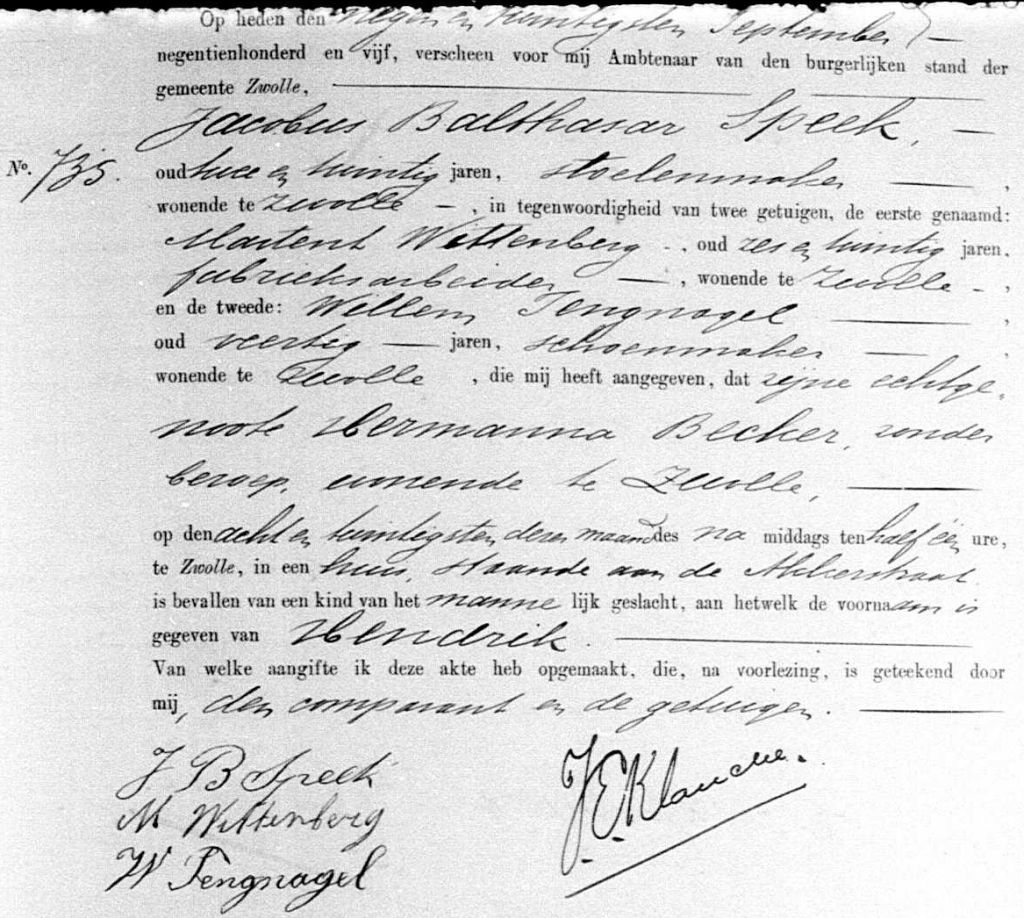 Op heden den negen en twintigsten September —
negentienhonderd en vijf, verscheen voor mij Ambtenaar van den burgerlijken stand der
gemeente Zwolle,
Jacobus Balthasar Speek, —
No. 735. oud twee en twintig jaren, stoelenmaker — ,
wonende te Zwolle — , in tegenwoordigheid van twee getuigen, de eerste genaamd:
Martent Wittenberg - , oud zes en twintig jaren,
fabrieksarbeider — , wonende te Zwolle - ,
en de tweede: Willem Tengnagel — ,
oud veertig — jaren, schoenmaker — ,
wonende te Zwolle , die mij heeft aangegeven, dat zijne echtge-
noote Hermanna Becker, zonder
beroep, wonende te Zwolle, —
op den acht en twintigsten dezer maand des na middags ten half één ure,
te Zwolle, in een huis, staande aan de
is bevallen van een kind van het manne lijk geslacht, aan hetwelk de voornaam is
gegeven van Hendrik. —
Van welke aangifte ik deze akte heb opgemaakt, die, na voorlezing, is geteekend door
mij, den comparant en de getuigen. —
J B Speek
M Wittenberg
W Tengnagel